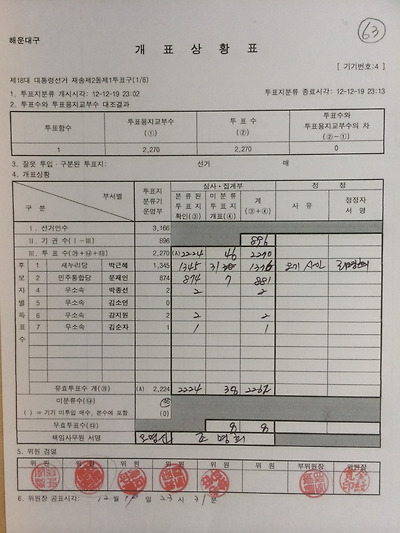 해운대구
63
개 표 상 황 표
[ 기기번호:4 ]
제18대 대통령선거 재송제2동제1투표구(1/8)
1. 투표지분류 개시시각: 12-12-19 23:02 투표지분류 종료시각: 12-12-19 23:13
2. 투표수와 투표용지교부수 대조결과
투표함수 투표용지교부수 (①) 투표수 (②) 투표수와 투표용지교부수의 차 (②-①)
1 2,270 2,270 0
3. 잘못 투입·구분된 투표지: 선거 매
4. 개표상황
구 분 부서별 투표지분류기운영부 심사·집계부 정 정
분류된 투표지 확인(③) 미분류 투표지 개표(④) 계 (③+④) 사 유 정정자 서 명
Ⅰ. 선거인수 3,166
Ⅱ. 기권수(Ⅰ-Ⅲ) 896 896
Ⅲ. 투표수 2,270 (A) 2224 46 2270
후보자별득표수
1 새누리당 박근혜 1,345 1345 31 1376 오기
2 민주통합당 문재인 874 874 7 881
4 무소속 박종선 2 2 2
5 무소속 김소연 0
6 무소속 강지원 2 2 2
7 무소속 김순자 1 1 1
유효투표수 계 (A) 2,224 2224 38 2262
미분류수
( )= 기기 미투입 매수, 본수에 포함 (0)
무효투표수 8 8
책임사무원 서명
5. 위원 검열
위 원 위 원 위 원 위 원 위 원 위 원 위 원 부위원장 위원장
6. 위원장 공표시각: 12월 19일 23시 31분